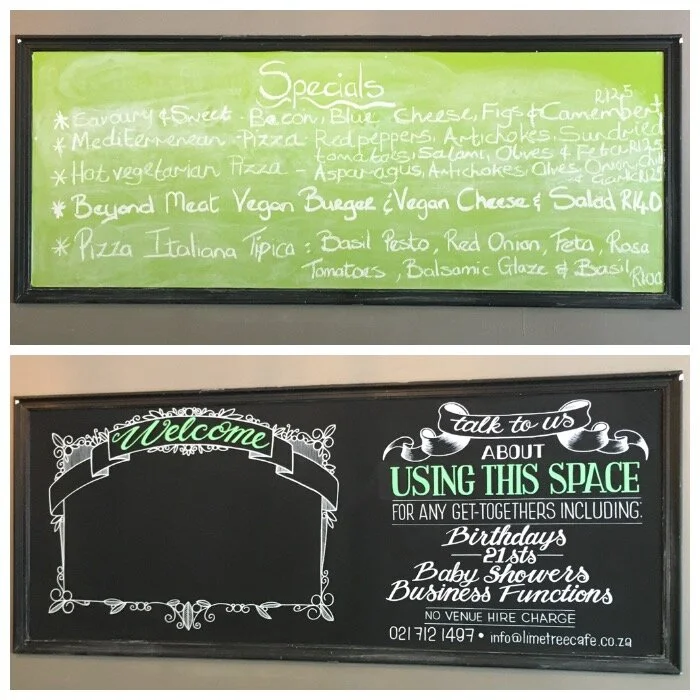 Specials
R125
* Savoury & Sweet - Bacon, Blue Cheese, Figs & Camembert
* Mediterrenean - Pizza - Red peppers, Artichokes, Sundried
tomatoes, Salami, Olives & Feta R125
* Hot vegetarian Pizza - Asparagus, Artichokes, Olives, Onion, Chilli
& Garlic R125
* Beyond Meat Vegan Burger & Vegan Cheese & Salad R140
* Pizza Italiana Tipica : Basil Pesto, Red Onion, Feta, Rosa
Tomatoes, Balsamic Glaze & Basil R100
Welcome
talk to us
ABOUT
USING THIS SPACE
FOR ANY GET-TOGETHERS INCLUDING:
Birthdays
21sts
Baby Showers
Business Functions
NO VENUE HIRE CHARGE
021 712 1497 • info@limetreecafe.co.za